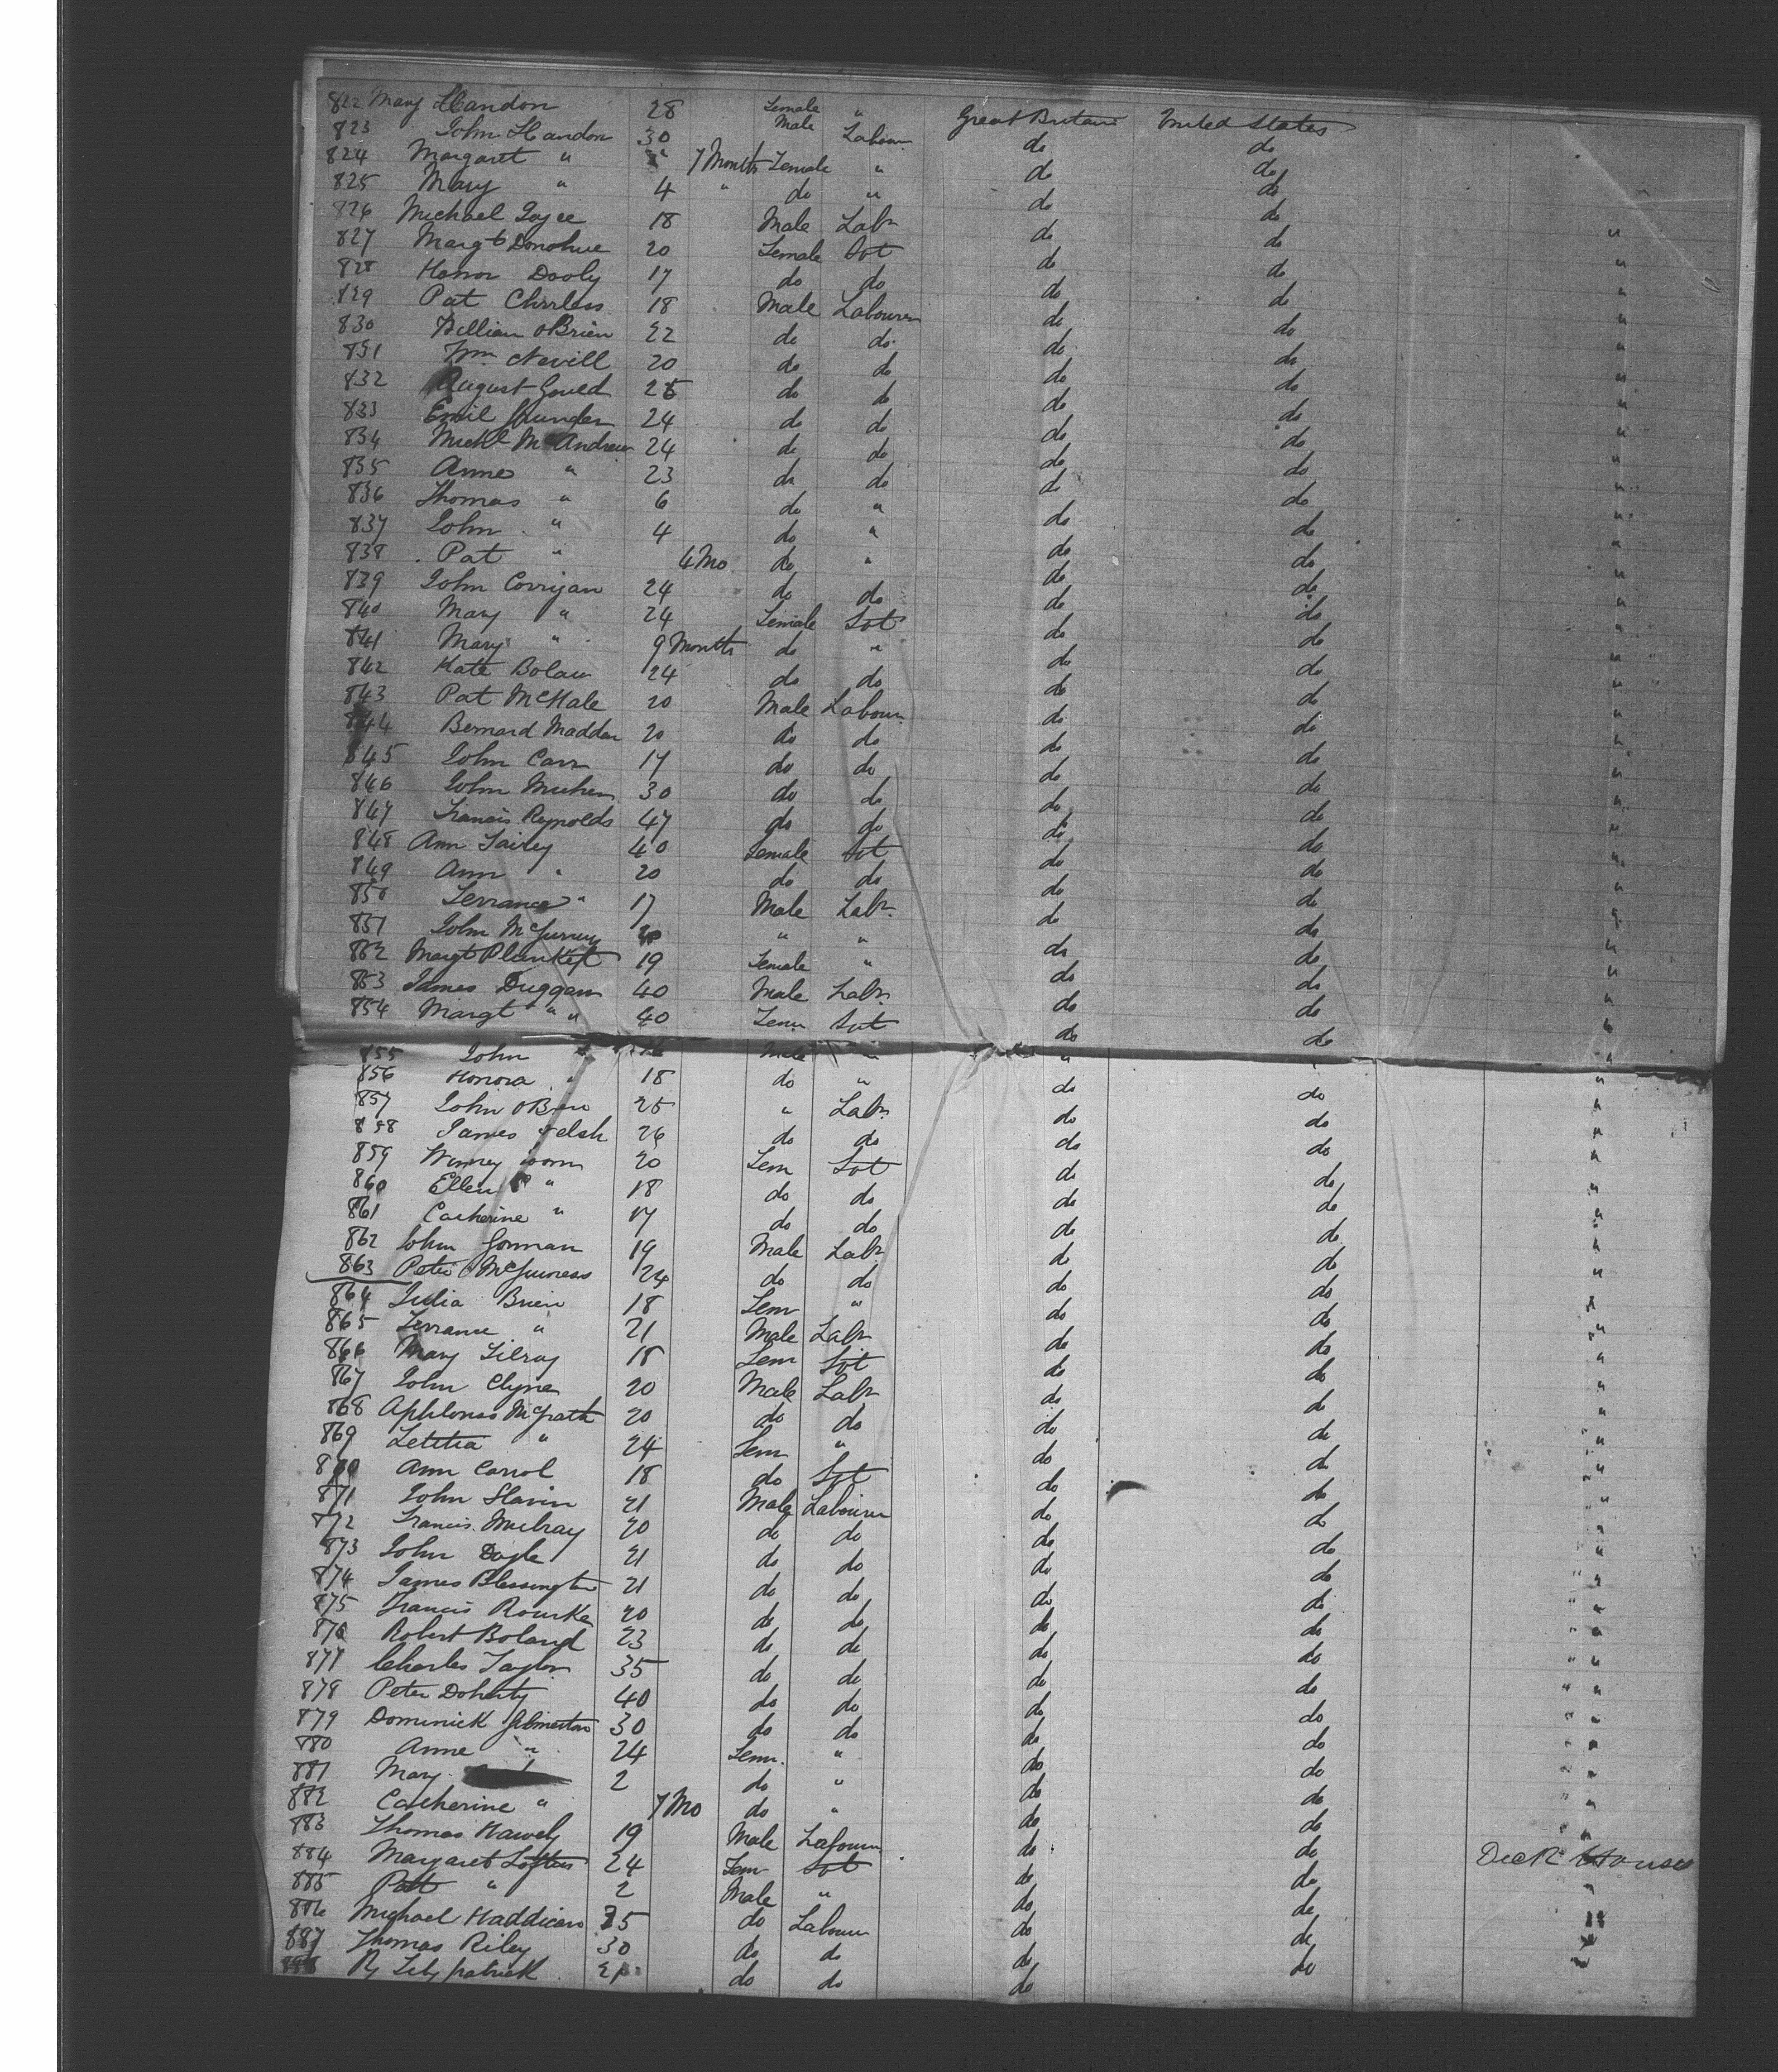 822 Mary Handon 28 Female " Great Britain United States
823 John Handon 30 Male Labour do do
824 Margaret " " 7 Months Female " do do
825 Mary " 4 " do " do do
826 Michael Joyce 18 Male Labr do do "
827 Margt Donohue 20 Female Svt do do "
828 Honor Dooly 17 do do do do "
829 Pat 18 Male Labourer do do "
830 William OBrien 22 do do do do "
831 Wm Nevill 20 do do do do "
832 August Gould 25 do do do do "
833 Emil 24 do do do do "
834 Michl McAndrew 24 do do do do "
835 Anne " 23 do do do do "
836 Thomas " 6 do " do do "
837 John " 4 do " do do "
838 Pat " 4 Mo do " do do "
839 John Corrigan 24 do do do do "
840 Mary " 24 Female Svt do do "
841 Mary " 9 Months do " do do "
842 Kate Bolan 24 do do do do "
843 Pat McHale 20 Male Labour do do "
844 Bernard Madden 20 do do do do "
845 John Carr 17 do do do do "
846 John 30 do do do do "
847 Francis Reynolds 47 do do do do "
848 Ann 40 Female Svt do do "
849 Ann " 20 do do do do "
850 Terrance " 17 Male Labr do do "
851 John " " do do "
852 Margt Plunkett 19 Female " do do "
853 James Duggan 40 Male Labr do do "
854 Margt " " 40 Fem Svt do do "
855 John " Male " " "
856 Honora " 18 do " do do "
857 John OBrien 25 " Labr do do "
858 James 26 do do do do "
859 Winney 20 Fem Svt do do "
860 Ellen " 18 do do do do "
861 Catherine " 17 do do do do "
862 John Gorman 19 Male Labr do do "
863 Peter McGuiness 24 do do do do "
864 Julia Brien 18 Fem " do do "
865 Terrance " 21 Male Labr do do "
866 Mary Gilroy 18 Fem Svt do do "
867 John Clyne 20 Male Labr do do "
868 Aphlonso McGrath 20 do do do do "
869 Letitia " 24 Fem " do do "
870 Ann Carrol 18 do Svt do do "
871 John Slavin 21 Male Labourer do do "
872 Francis Mulray 20 do do do do "
873 John Doyle 21 do do do do "
874 James Blessington 21 do do do do " "
875 Francis Rourke 20 do do do do "
876 Robert Boland 23 do do do do " "
877 Charles Taylor 35 do do do do " "
878 Peter Doherty 40 do do do do " "
879 Dominick 30 do do do do " "
880 Anne " 24 Fem " do do "
881 Mary 2 do " do do " "
882 Catherine " 7 Mo do " do do "
883 Thomas Hawely 19 Male Labour do do "
884 Margaret Loftus 24 Fem Svt do do Deck House
885 Patt " 2 Male " do do "
886 Michael Haddican 35 do Labour do do "
887 Thomas Riley 30 do do do do "
888 Fitzpatrick do do do do "